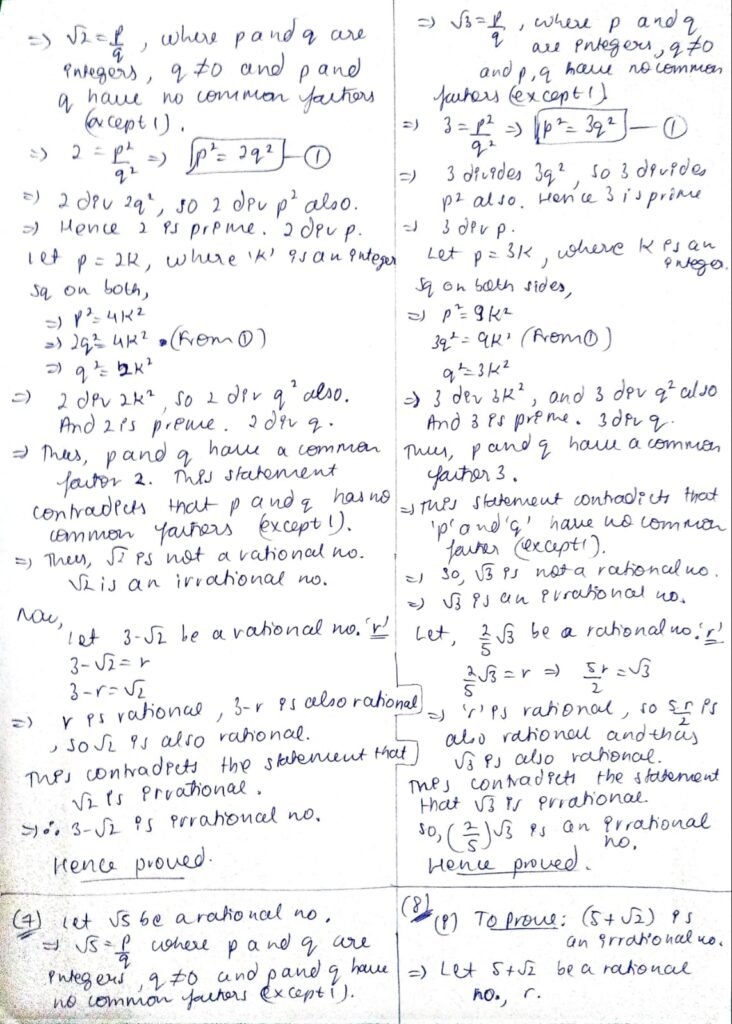 =) √2 = p/q , where p and q are
integers, q ≠0 and p and
q have no common factors
(except 1).
=) 2 = p²/q² =) p² = 2q² — ①
=) 2 div 2q², so 2 div p² also.
=) Hence 2 is prime. 2 div p.
Let p = 2K, where 'K' is an integer
Sq on both,
=) p² = 4K²
=) 2q² = 4K² (From ①)
=) q² = 2K²
=) 2 div 2K², so 2 div q² also.
And 2 is prime. 2 div q.
=) Thus, p and q have a common
factor 2. This statement
contradicts that p and q has no
common factors (except 1).
=) Thus, √2 is not a rational no.
√2 is an irrational no.
Now,
let 3-√2 be a rational no. 'r'
3-√2 = r
3-r = √2
=) r is rational, 3-r is also rational
, so √2 is also rational.
This contradicts the statement that
√2 is irrational.
=) ∴ 3-√2 is irrational no.
Hence proved.
(7) let √5 be a rational no.
=) √5 = p/q where p and q are
integers, q ≠0 and p and q have
no common factors (except 1).
=) √3 = p/q , where p and q
are integers, q≠0
and p, q have no common
factors (except 1)
=) 3 = p²/q² =) p² = 3q² — ①
=) 3 divides 3q², so 3 divides
p² also. Hence 3 is prime
=) 3 div p.
Let p = 3K, where K is an
integer.
Sq on both sides,
=) p² = 9K²
3q² = 9K² (From ①)
q² = 3K²
=) 3 div 3K², and 3 div q² also
And 3 is prime. 3 div q.
Thus, p and q have a common
factor 3.
=) This statement contradicts that
'p' and 'q' have no common
factor (except 1).
=) So, √3 is not a rational no.
=) √3 is an irrational no.
Let, 2/5 √3 be a rational no. 'r'
2/5 √3 = r =) 5r/2 = √3
=) 'r' is rational, so 5r/2 is
also rational and thus
√3 is also rational.
This contradicts the statement
that √3 is irrational.
So, (2/5)√3 is an irrational
no.
Hence proved.
(8) (i) To prove: (5+√2) is
an irrational no.
=) Let 5+√2 be a rational
no., r.